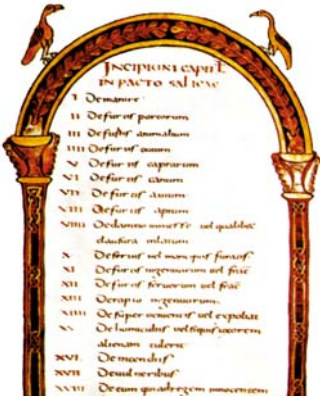 INCIPIUNT CAPITL
IN PACTO SALICAE
I De manire
II De furtis porcorum
III De furtis animalium
IIII De furtis ovium
V De furtis caprarum
VI De furtis canum
VII De furtis avium
VIII De furtis apium
VIIII De damno in messe vel qualibet
clausura inlatum
X De servis vel mancipiis furatis
XI De furtis ingenuorum vel frac
XII De furtis servorum vel frac
XIII De rapto ingenuorum
XIIII De super venientis vel expoliat
XV De homicidiis vel si quis uxorem
alienam tulerit
XVI De incendiis
XVII De vulneribus
XVIII De eum qui ad regem innocentem